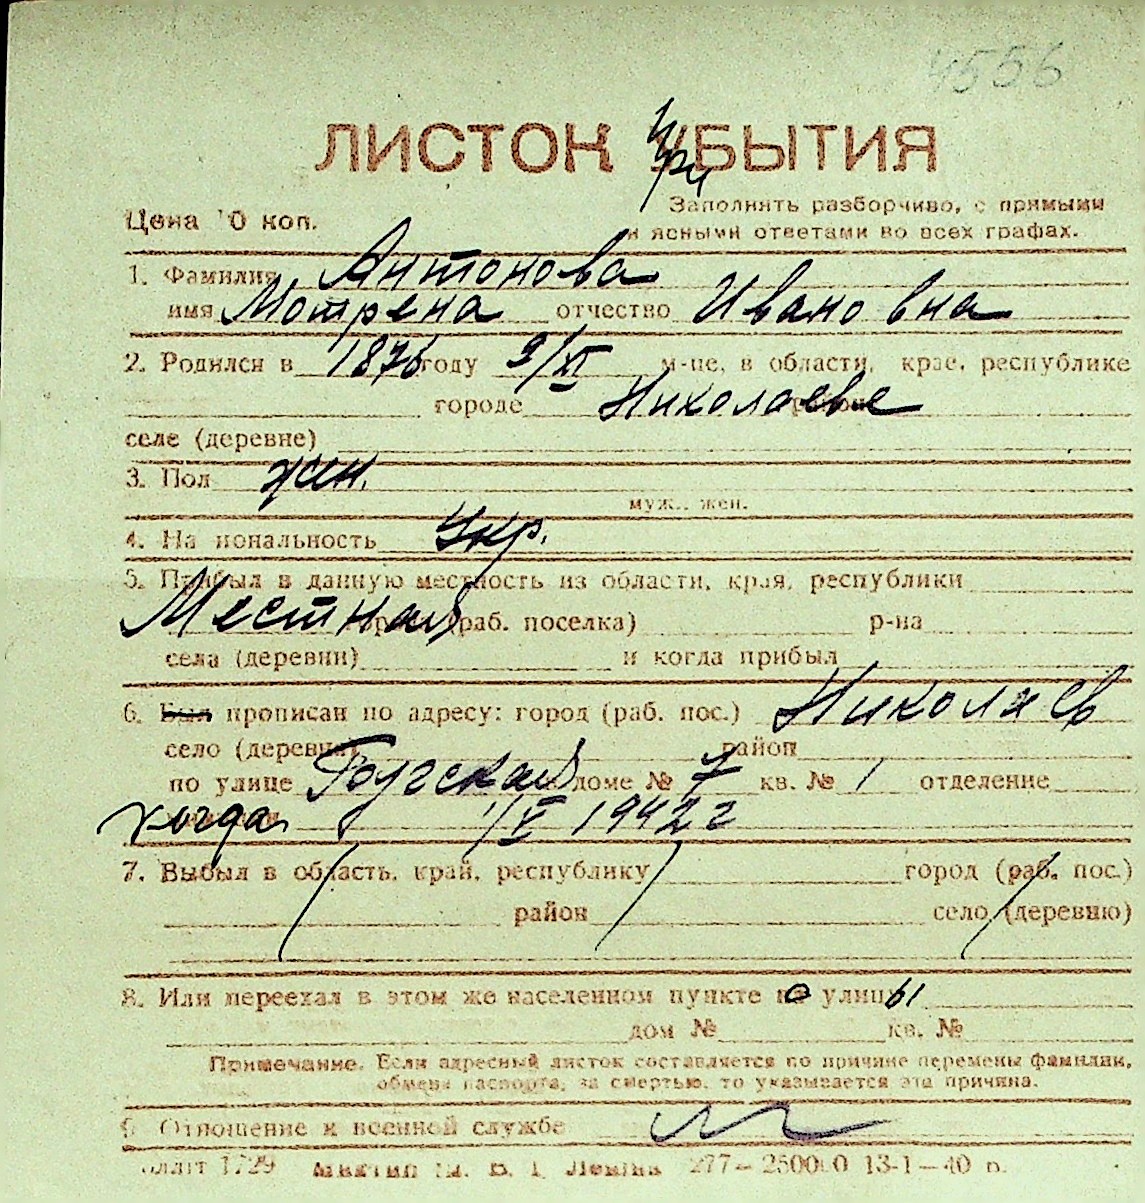 4556
ЛИСТОК УБЫТИЯ
при
Цена 10 коп.
Заполнять разборчиво, с прямыми
и ясными ответами во всех графах.
1. Фамилия Антонова
имя Мотрена отчество Ивановна
2. Родился в 1876 году 9/XI м-це, в области, крае, республике
городе Николаеве
селе (деревне)
3. Пол жен.
муж., жен.
4. Национальность Укр.
5. Прибыл в данную местность из области, края, республики
Местная города (раб. поселка) р-на
села (деревни) и когда прибыл
6. Был прописан по адресу: город (раб. пос.) Николаев
село (деревня) район
по улице доме № 7 кв. № 1 отделение
когда 1/V 1942 г
7. Выбыл в область, край, республику город (раб. пос.)
район село (деревню)
8. Или переехал в этом же населенном пункте с улицы
дом № кв. №
Примечание. Если адресный листок составляется по причине перемены фамилии,
обмена паспорта, за смертью, то указывается эта причина.
9. Отношение к военной службе
1729 им. В. И. Ленина 277—250000 13-1—40 г.